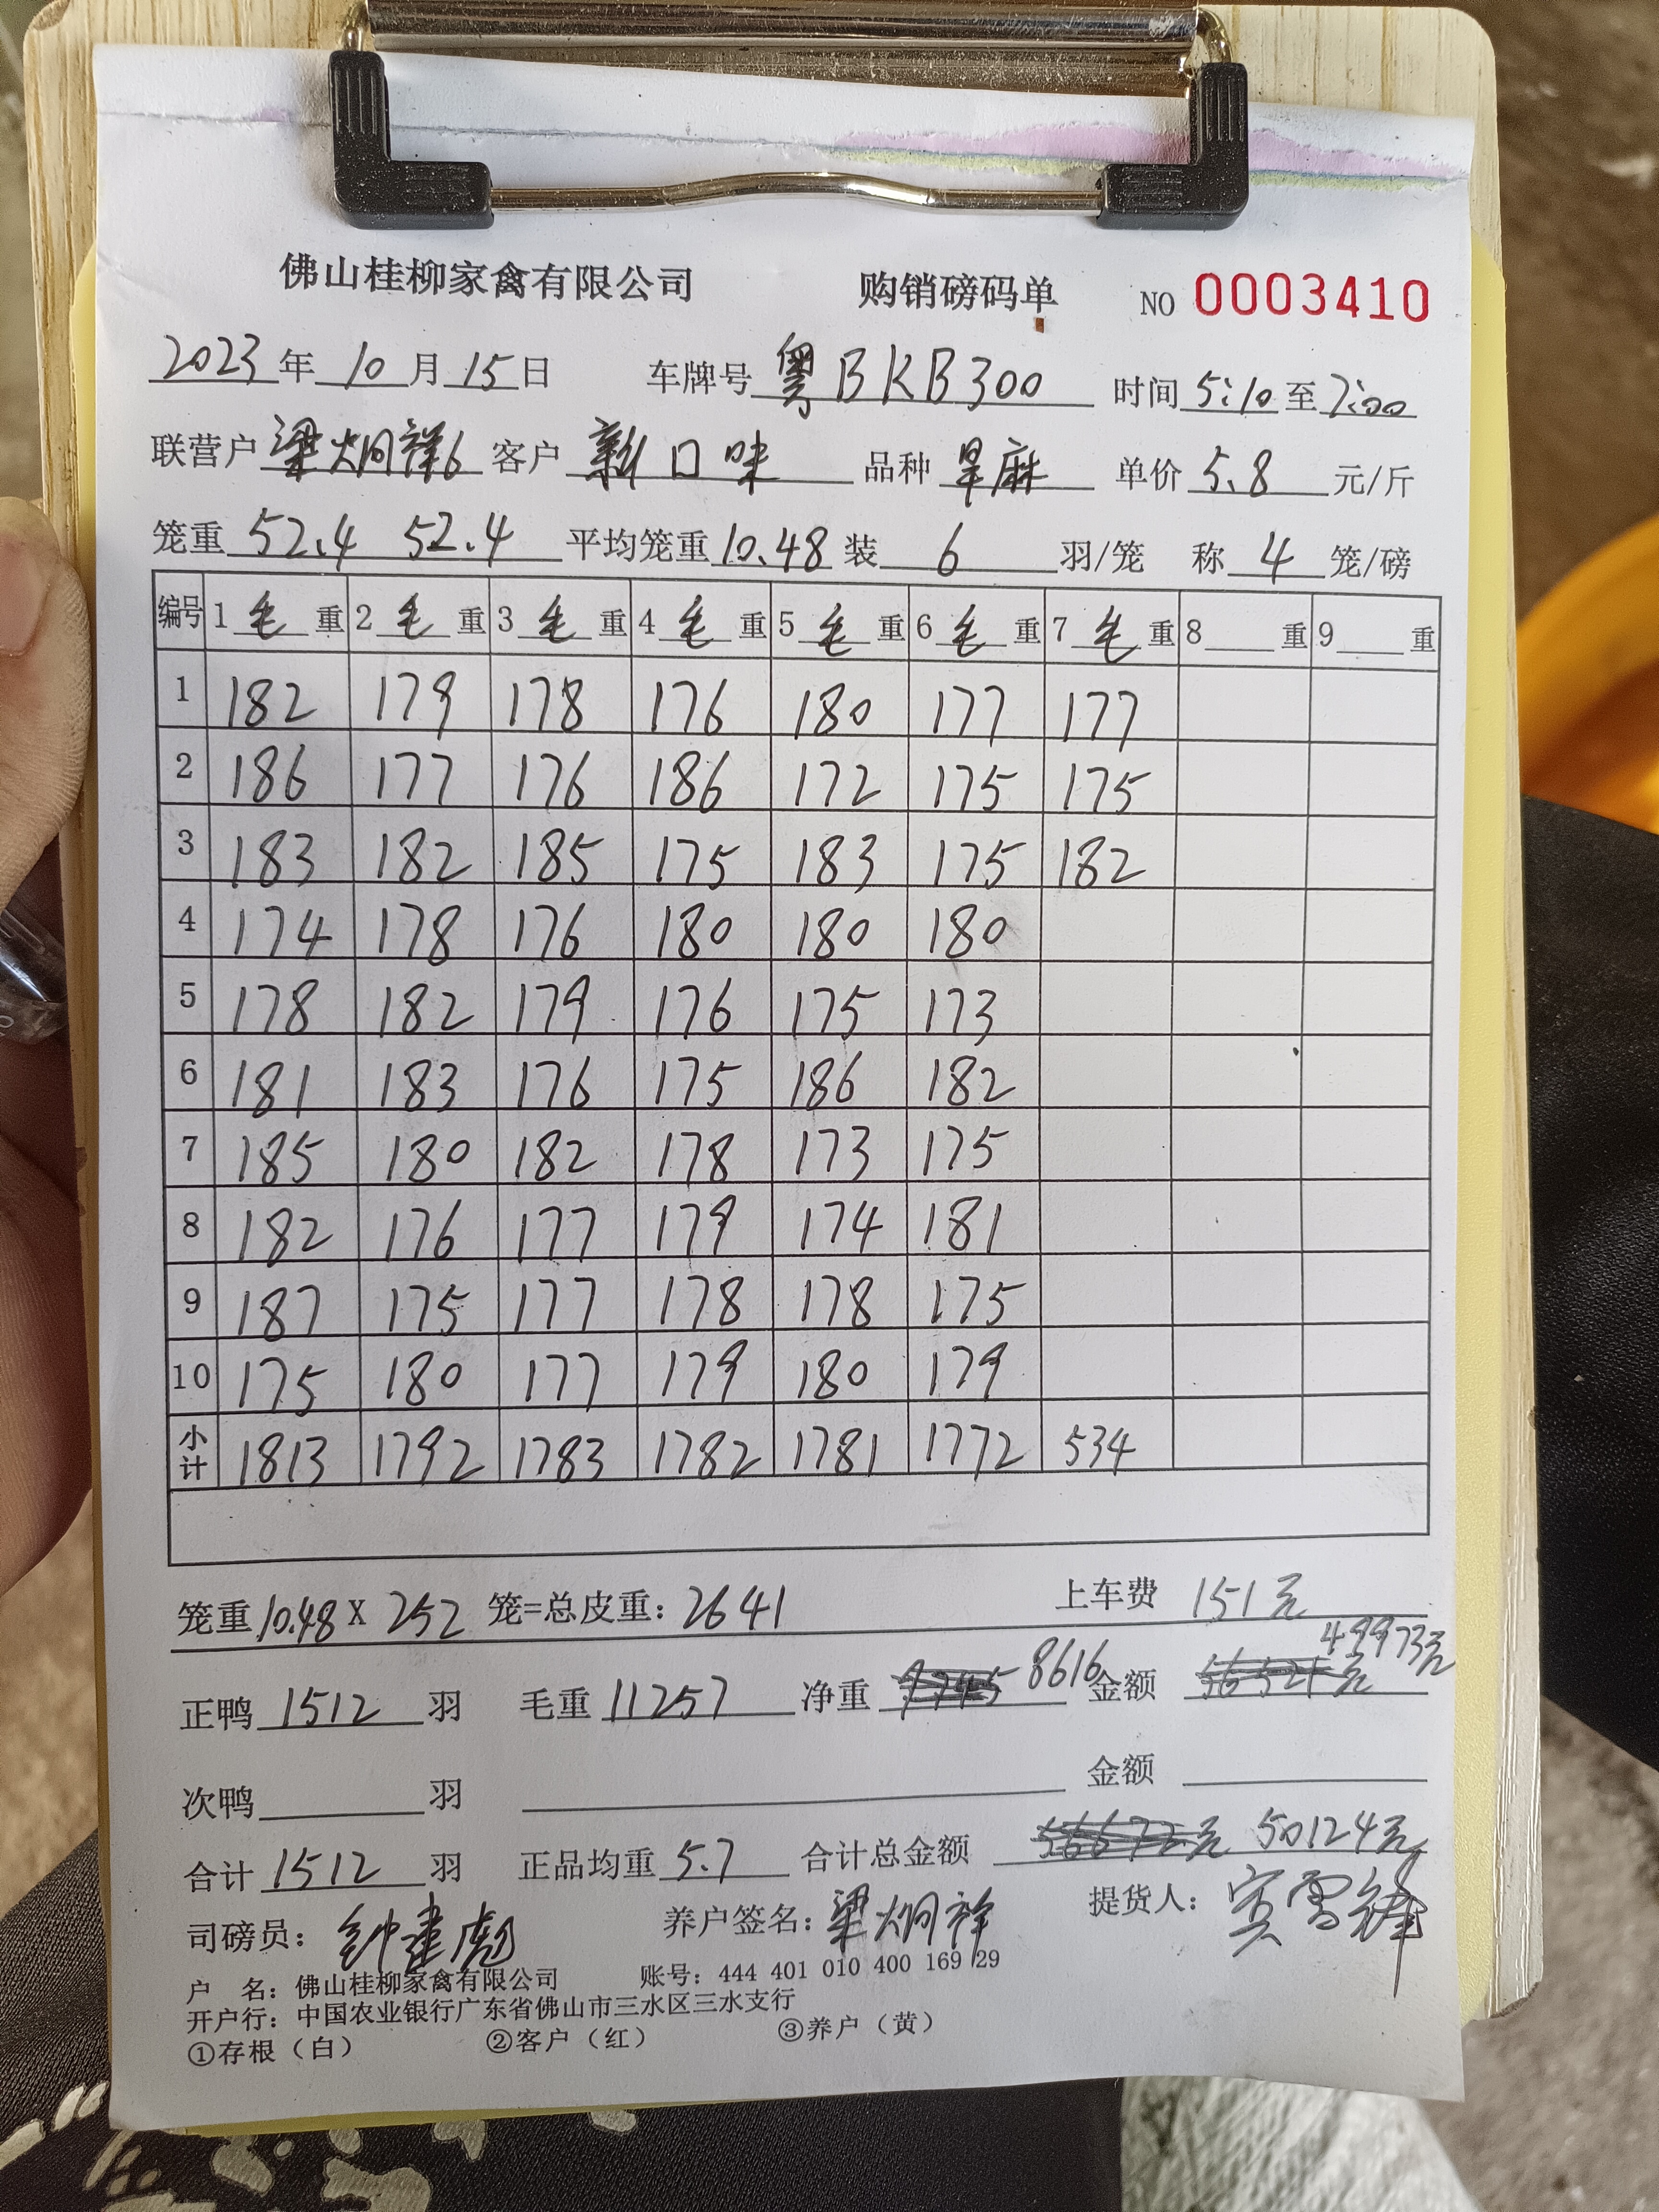 佛山桂柳家禽有限公司 购销磅码单 NO 0003410
2023年10月15日 车牌号 粤BKB300 时间 5:10至7:00
联营户 梁炯祥6 客户 新口味 品种 旱麻 单价 5.8 元/斤
笼重 52.4 52.4 平均笼重 10.48 装 6 羽/笼 称 4 笼/磅
编号 1毛重 2毛重 3毛重 4毛重 5毛重 6毛重 7毛重 8重 9重
1 182 179 178 176 180 177 177
2 186 177 176 186 172 175 175
3 183 182 185 175 183 175 182
4 174 178 176 180 180 180
5 178 182 179 176 175 173
6 181 183 176 175 186 182
7 185 180 182 178 173 175
8 182 176 177 179 174 181
9 187 175 177 178 178 175
10 175 180 177 179 180 179
小计 1813 1792 1783 1782 1781 1772 534
笼重 10.48 X 252 笼=总皮重: 2641 上车费 151元
正鸭 1512 羽 毛重 11257 净重 8616 金额 56521元 49973元
次鸭 羽 金额
合计 1512 羽 正品均重 5.7 合计总金额 56672元 50124元
司磅员: 钟建彪 养户签名: 梁炯祥 提货人: 宾雪锋
户 名: 佛山桂柳家禽有限公司 账号: 444 401 010 400 169 29
开户行: 中国农业银行广东省佛山市三水区三水支行
①存根（白） ②客户（红） ③养户（黄）